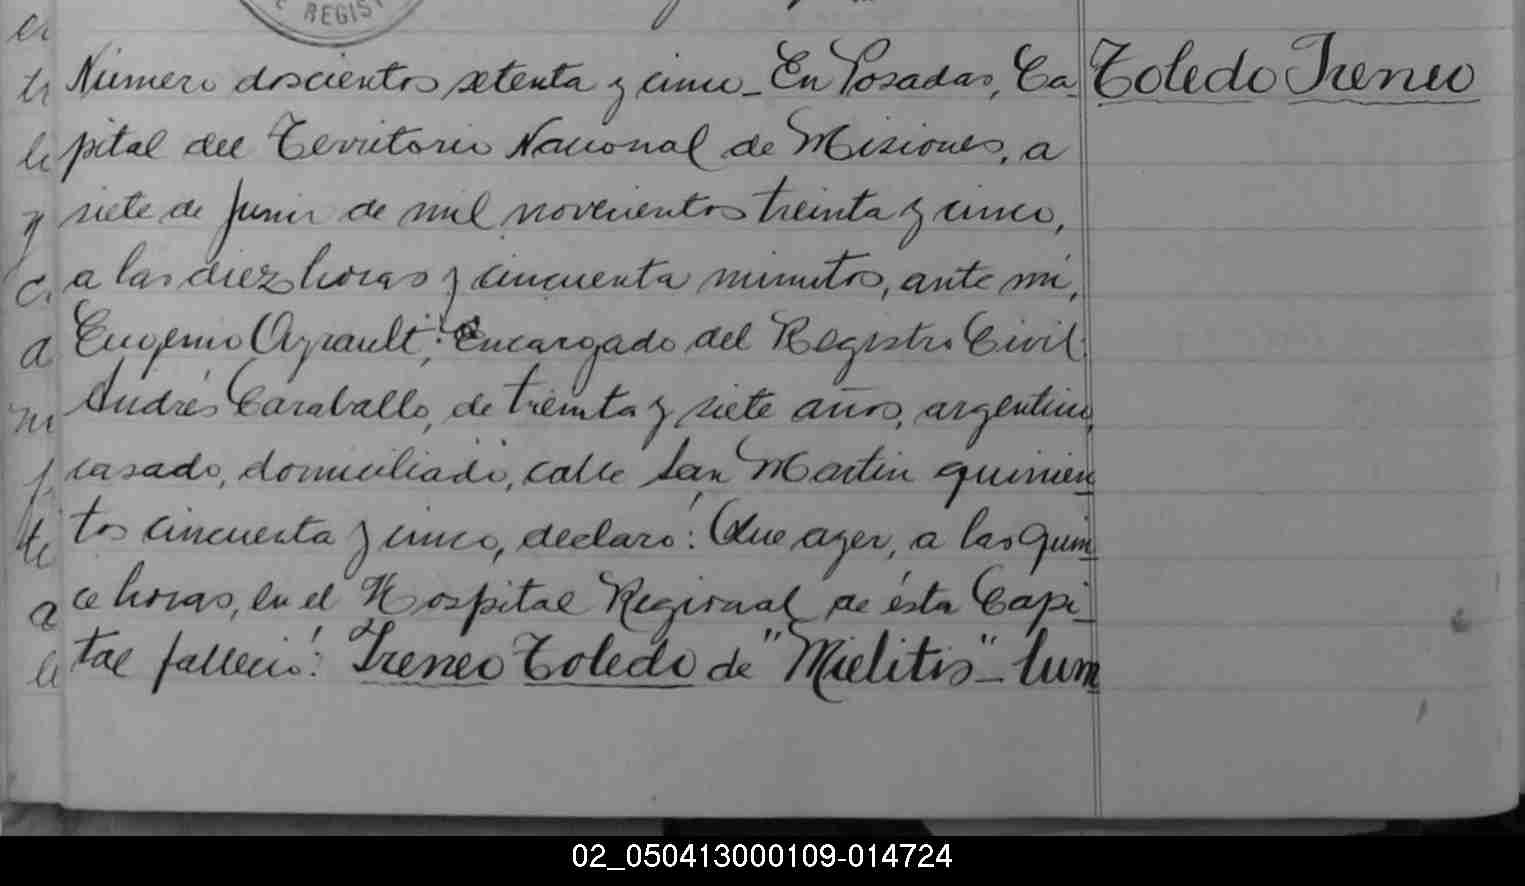 REGIS
Número doscientos setenta y cinco_ En Posadas, Ca
Toledo Ireneo
pital del Territorio Nacional de Misiones, a
siete de junio de mil novecientos treinta y cinco,
a las diez horas y cincuenta minutos, ante mí,
Eugenio Ayrault, Encargado del Registro Civil
Andrés Caraballo, de treinta y siete años, argentino,
casado, domiciliado, calle San Martin quinien
tos cincuenta y cinco, declaró: Que ayer, a las quin
ce horas, en el Hospital Regional de ésta Capi_
tal falleció: Ireneo Toledo de "Mielitis"_
02_050413000109-014724